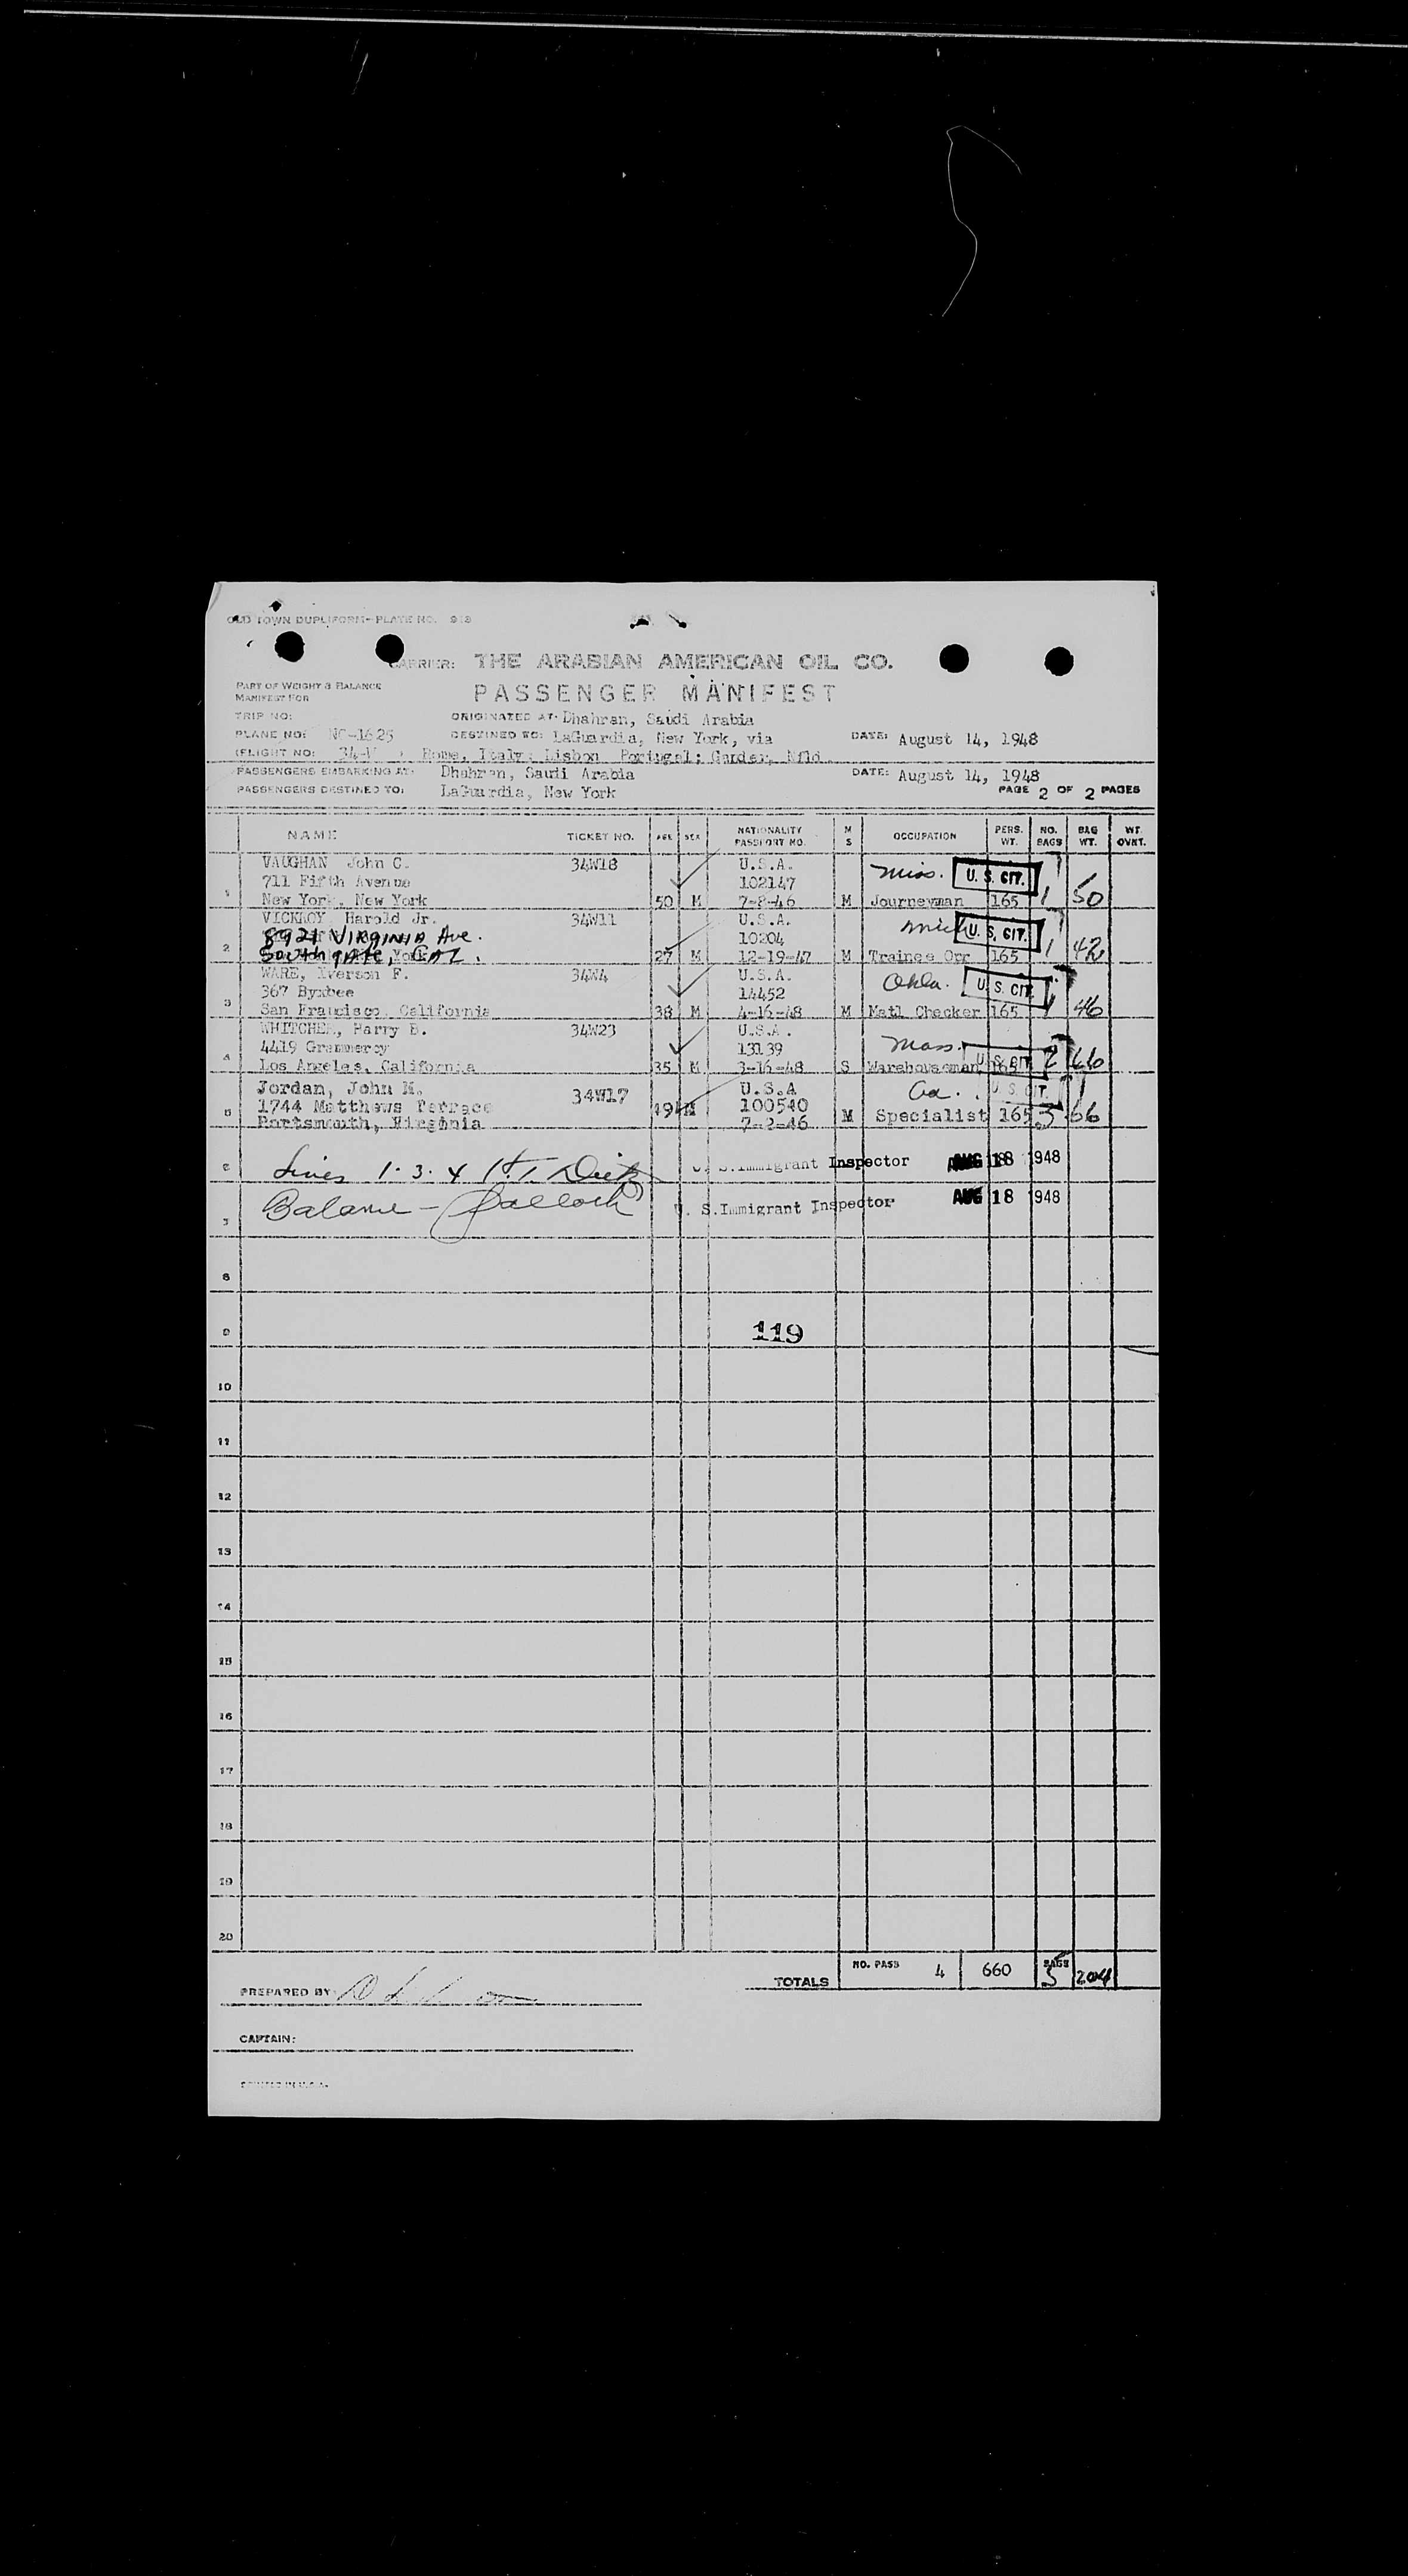 OLD TOWN DUPLIFORM-PLATE NO. 918
CARRIER: THE ARABIAN AMERICAN OIL CO.
PASSENGER MANIFEST
PART OF WEIGHT & BALANCE
MANIFEST FOR
TRIP NO: ORIGINATED AT: Dhahran, Saudi Arabia
PLANE NO: NC-1625 DESTINED TO: LaGuardia, New York, via DATE: August 14, 1948
FLIGHT NO: Rome, Italy; Lisbon Portugal; Gander, Nfld.
PASSENGERS EMBARKING AT: Dhahran, Saudi Arabia DATE: August 14, 1948
PASSENGERS DESTINED TO: LaGuardia, New York PAGE 2 OF 2 PAGES
NAME TICKET NO. AGE SEX NATIONALITY PASSPORT NO. M S OCCUPATION PERS. WT. NO. BAGS BAG WT. WT. OVNT.
VAUGHAN John C. 34W18 U.S.A. Miss. U. S. CIT.
711 Fifth Avenue 102147
1 New York, New York 50 M 7-8-46 M Journeyman 165 1 50
VICKROY, Harold Jr. 34W11 U.S.A. Mich U. S. CIT.
8921 VIRGINIA Ave. 10204
2 South gATE, CAL. 27 M 12-19-47 M Trainee Opr 165 1 42
WARE, Iverson F. 34W4 U.S.A. Okla. U. S. CIT.
367 Byxbee 14452
3 San Francisco, California 38 M 4-16-48 M Matl Checker 165 1 46
WHITCHER, Harry B. 34W23 U.S.A. Mass. U. S. CIT.
4419 Grammercy 13139
4 Los Angeles, California 35 M 3-16-48 S Warehouseman 165 2 66
Jordan, John M. 34W17 U.S.A Ga. U. S. CIT.
1744 Matthews Terrace 100540
5 Portsmouth, Virginia 49 M 7-2-46 M Specialist 165 3 66
6 Lines 1. 3. 4 H. T. Dietz U. S.Immigrant Inspector AUG 18 1948
7 Balance - U. S.Immigrant Inspector AUG 18 1948
8
9 119
10
11
12
13
14
15
16
17
18
19
20
TOTALS NO. PASS 4 660 BAGS 5 204
PREPARED BY:
CAPTAIN:
PRINTED IN U.S.A.